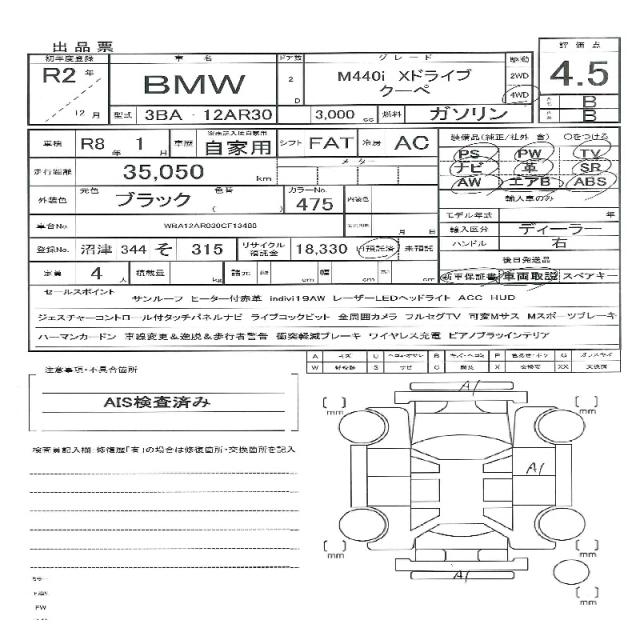 出品票
初年度登録 車名 ドア数 グレード 駆動 評価点
R2年 12月 BMW 2D M440i Xドライブ クーペ 2WD 4WD 4.5
型式 3BA - 12AR30 3,000 cc 燃料 ガソリン B B
車検 R8年 1月 車歴 自家用 シフト FAT 冷房 AC
装備品(純正/社外 含) ○をつける
走行距離 35,050 km メーター
PS PW TV
ナビ 革 SR
AW エアB ABS
外装色 元色 ブラック 色替 カラーNo. 475 内装色
輸入車のみ
モデル年式 年
車台No.
輸入区分 ディーラー
登録No. 沼津 344 そ 315 リサイクル預託金 18,330 預託済 未預託
ハンドル 右
定員 4人 積載量 kg 諸元 cm 幅 cm cm
後日発送品
新車保証書 車両取説 スペアキー
セールスポイント
サンルーフ ヒーター付赤革 indivi19AW レーザーLEDヘッドライト ACC HUD
ジェスチャーコントロール付タッチパネルナビ ライブコックピット 全周囲カメラ フルセグTV 可変Mサス Mスポーツブレーキ
ハーマンカードン 車線変更&逸脱&歩行者警告 衝突軽減ブレーキ ワイヤレス充電 ピアノブラックインテリア
注意事項・不具合箇所
AIS検査済み
検査員記入欄 修復歴「有」の場合は修復箇所・交換箇所を記入
A1
mm mm
A1
mm mm
A1
mm